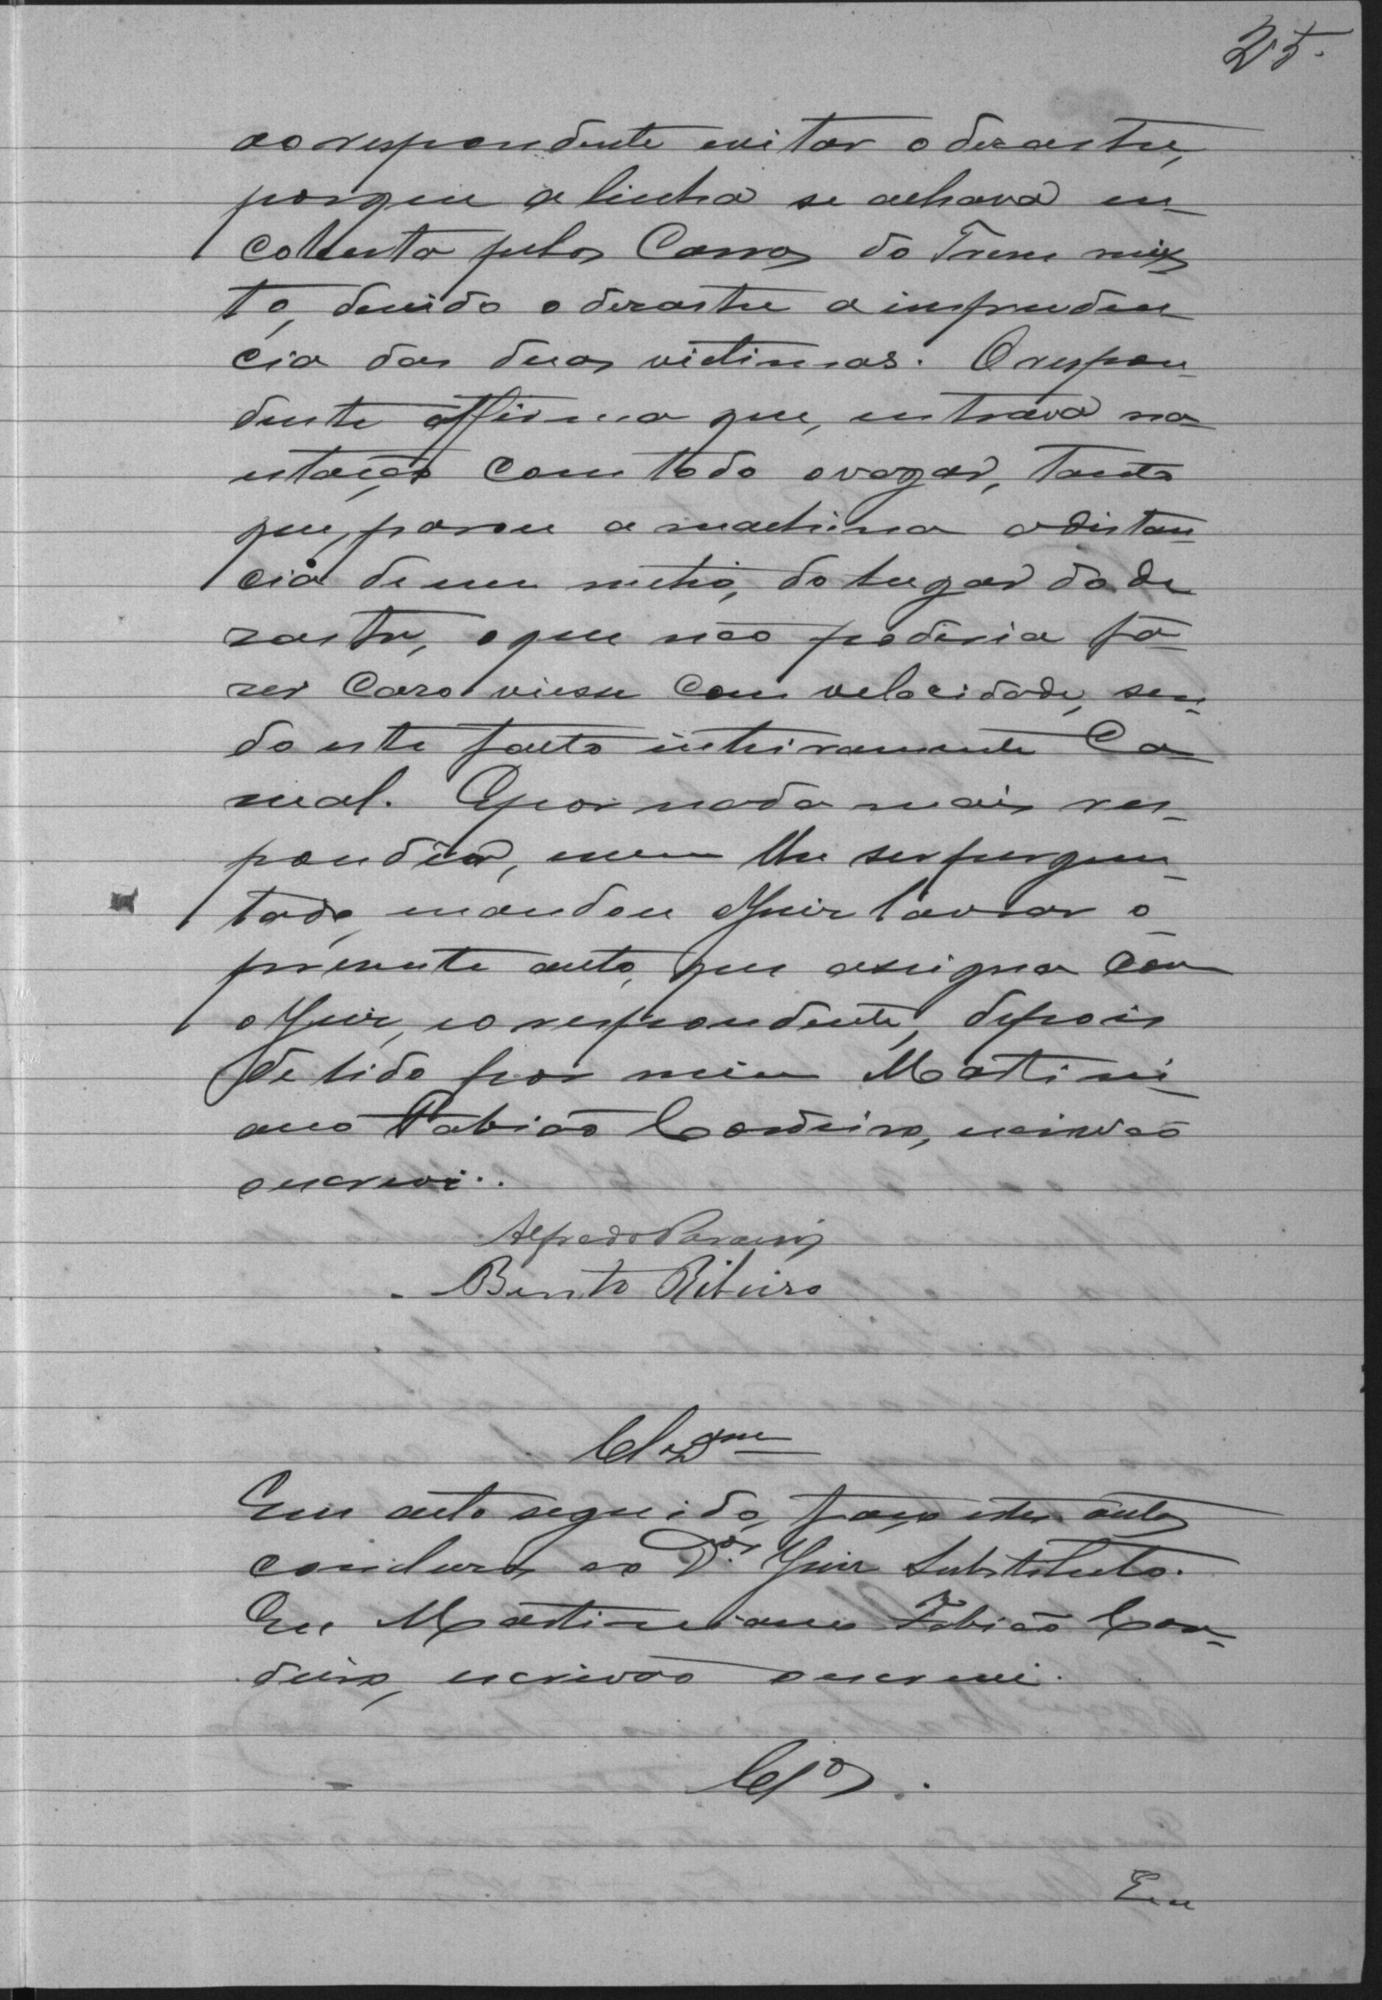 25.
ao respondente evitar o dezastre,
porque a linha se achava en-
coberta pelos Carros do Trem mix
to, devido o dezastre a impruden
cia das duas victimas. O respon-
dente affirma que, entrava na
estação com todo o vagar, tanto
que, parou a machina a distan-
cia de um metro, do lugar do de
zastre, o que não poderia fa-
zer caso viesse com velocidade, sen-
do este facto inteiramente Ca-
sual. E por nada mais res-
pondeu, nem lhe ser pergun-
tado, mandou o Juiz lavrar o
presente auto, que assigna com
o Juiz, e o respondente, depois
de lido por mim Martini
ano Fabião Cordeiro, escrivão
o escrevi..
Alfredo
Bento Ribeiro
Clsam
Em acto seguido, faço estes autos
conclusos ao Dor. Juiz Substituto.
Eu Martiniano Fabião Cor-
deiro, escrivão o escrevi.
Clos.
Em